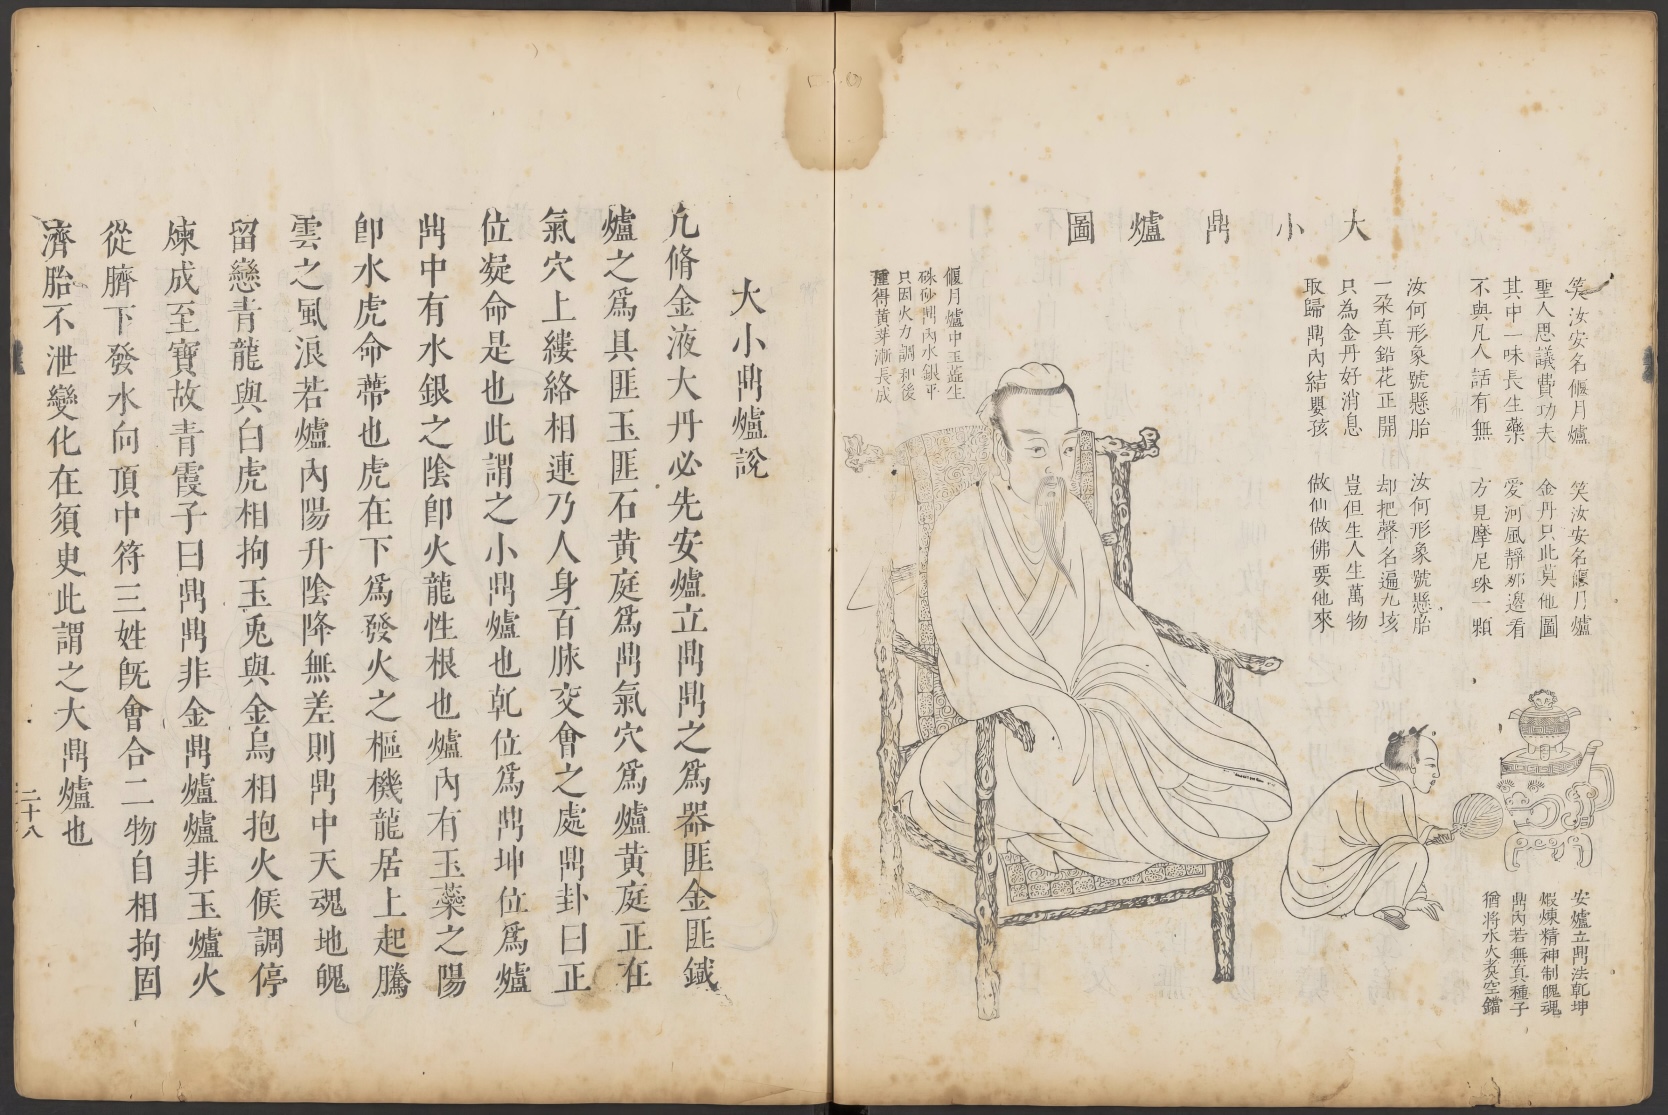 大小鼎爐圖
笑汝安名偃月爐
聖人思議費功夫
其中一味長生藥
不與凡人話有無
笑汝安名偃月爐
金丹只此莫他圖
愛河風靜那邊看
方見摩尼珠一顆
汝何形象號懸胎
一朶真鉛花正開
只為金丹好消息
取歸鼎內結嬰孩
汝何形象號懸胎
却把聲名遍九垓
豈但生人生萬物
做仙做佛要他來
偃月爐中玉蕋生
硃砂鼎內水銀平
只因火力調和後
種得黃芽漸長成
安爐立鼎法乾坤
煅煉精神制魄魂
鼎內若無真種子
猶將水火煮空鐺
大小鼎爐說
凢脩金液大丹必先安爐立鼎鼎之爲器匪金匪鐵
爐之爲具匪玉匪石黃庭爲鼎氣穴爲爐黃庭正在
氣穴上縷絡相連乃人身百脉交會之處鼎卦曰正
位凝命是也此謂之小鼎爐也乹位爲鼎坤位爲爐
鼎中有水銀之隂卽火龍性根也爐內有玉蘂之陽
卽水虎命蒂也虎在下爲發火之樞機龍居上起騰
雲之風浪若爐內陽升隂降無差則鼎中天魂地魄
留戀青龍與白虎相拘玉兎與金烏相抱火候調停
煉成至寶故青霞子曰鼎鼎非金鼎爐爐非玉爐火
從臍下發水向頂中符三姓旣會合二物自相拘固
濟胎不泄變化在須臾此謂之大鼎爐也
二十八